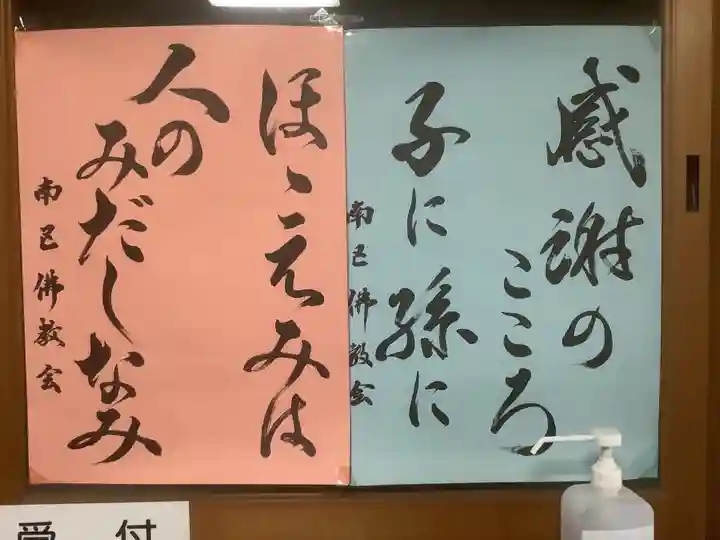 感謝の
こころ
子に孫に
南巨佛教会
ほゝえみは
人の
みだしなみ
南巨佛教会
受付